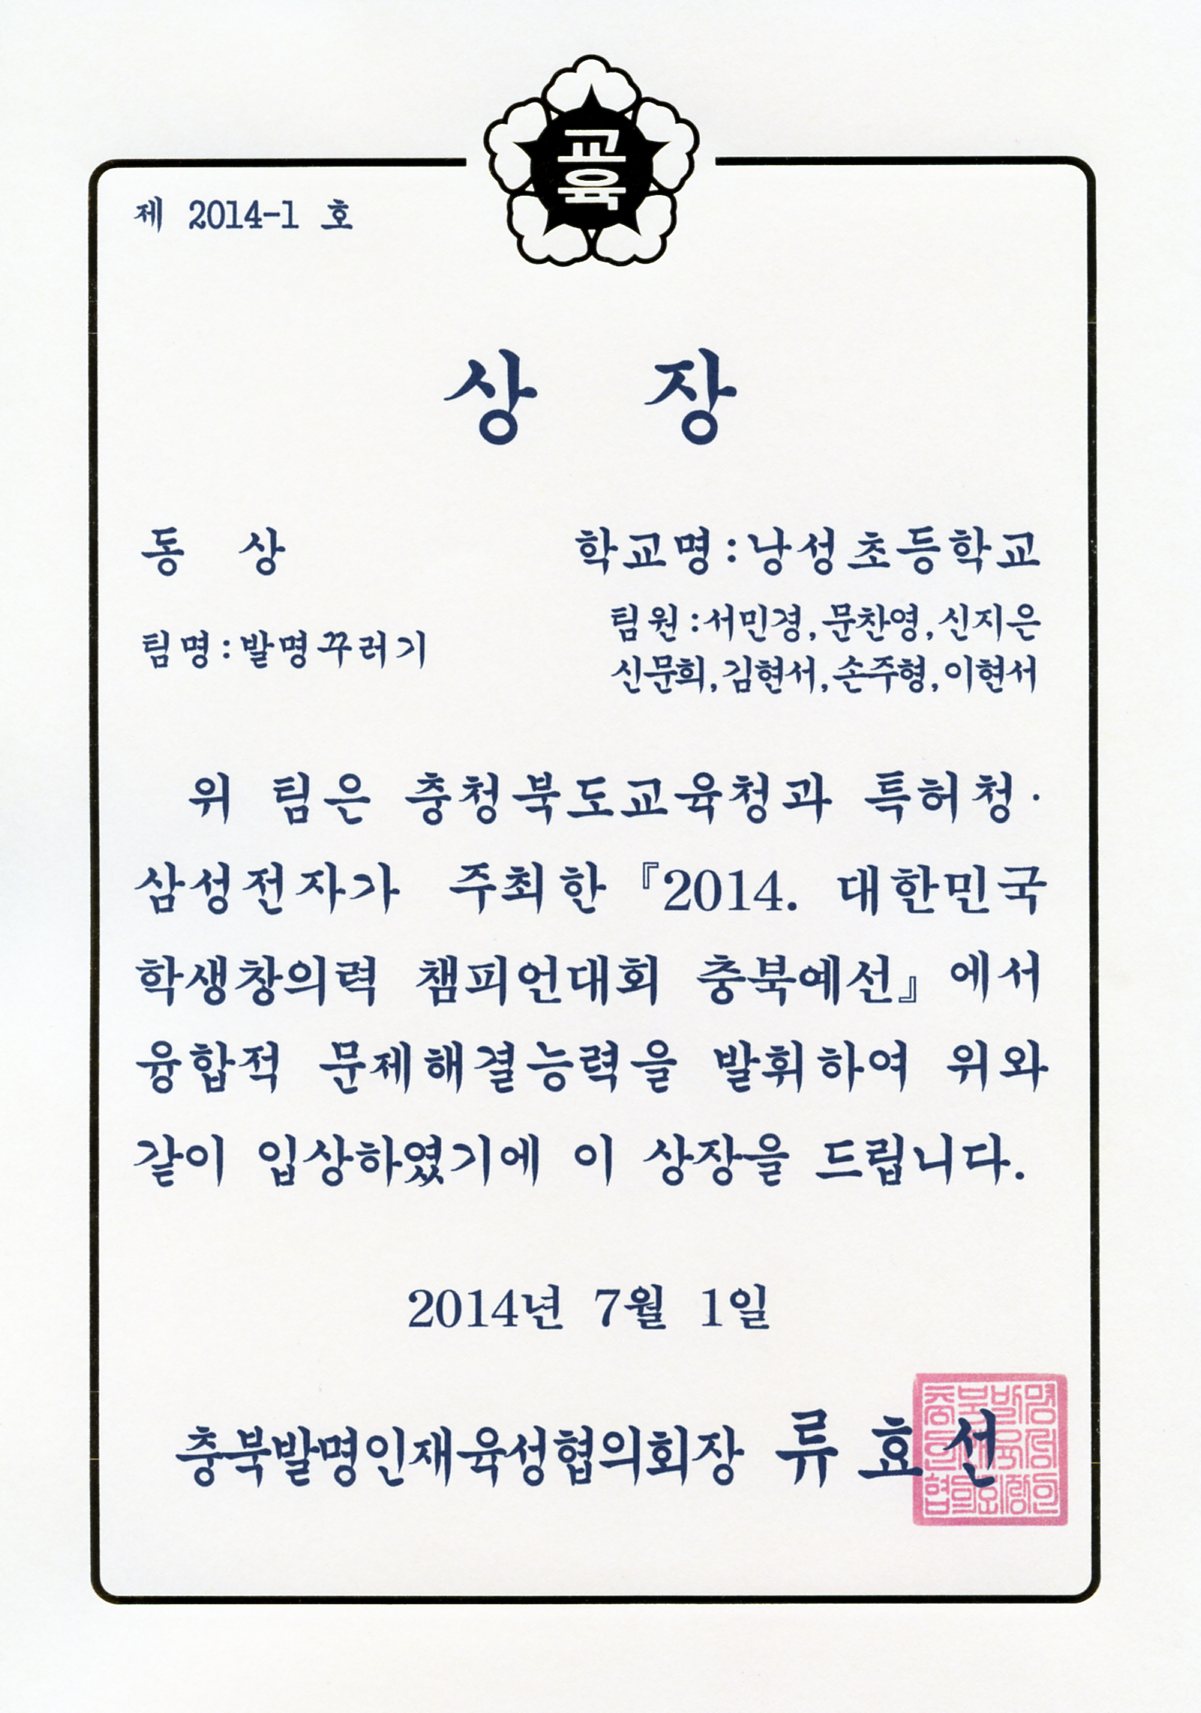 교육
제 2014-1 호
상 장
동 상
학교명:낭성초등학교
팀명:발명꾸러기
팀원:서민경,문찬영,신지은
신문희,김현서,손주형,이현서
위 팀은 충청북도교육청과 특허청·
삼성전자가 주최한 『2014. 대한민국
학생창의력 챔피언대회 충북예선』에서
융합적 문제해결능력을 발휘하여 위와
같이 입상하였기에 이 상장을 드립니다.
2014년 7월 1일
충북발명인재육성협의회장 류효선